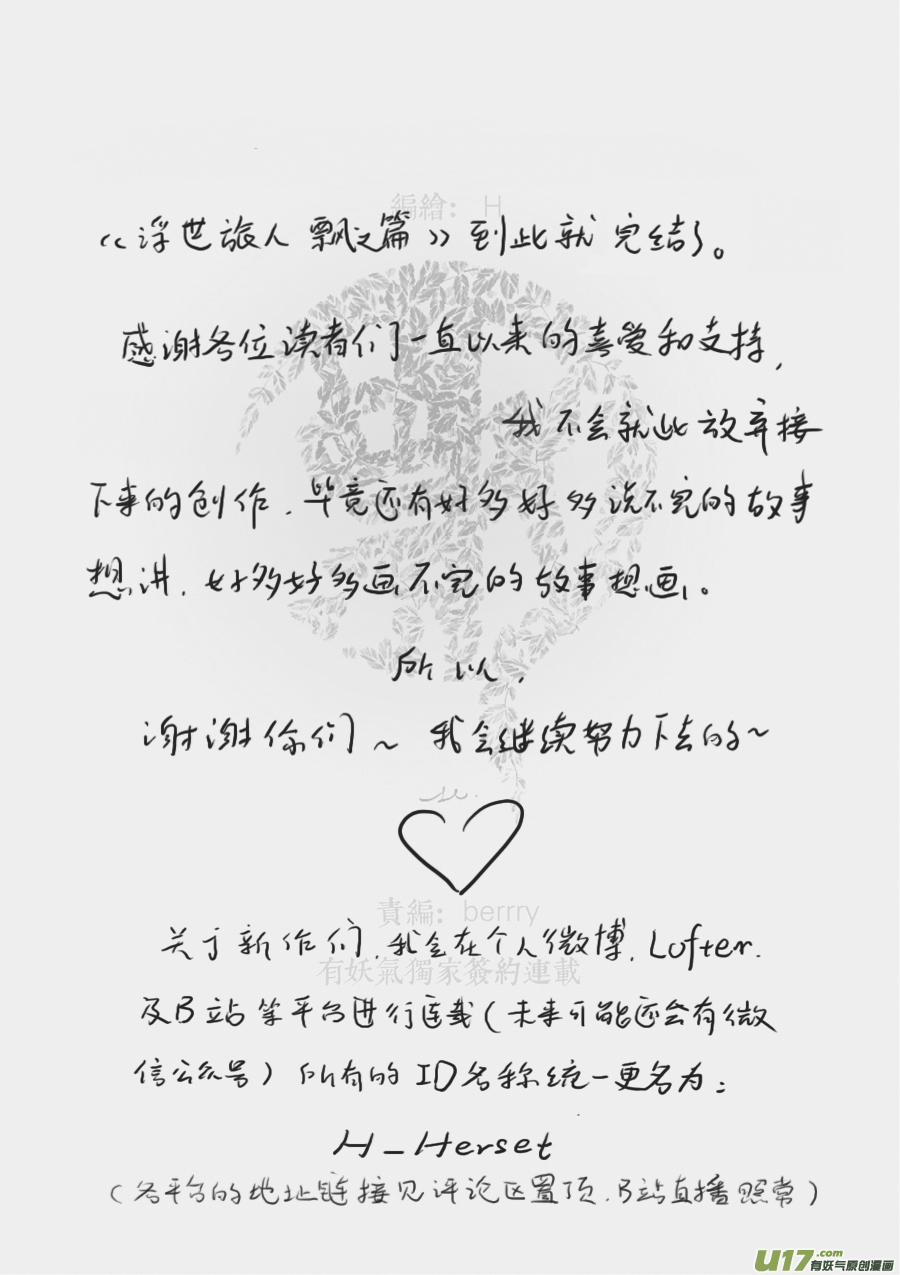 編繪: H
《浮世旅人 飘之篇》到此就完结了。
感谢各位读者们一直以来的喜爱和支持,
我不会就此放弃接
下来的创作,毕竟还有好多好多说不完的故事
想讲,好多好多画不完的故事想画。
所以,
谢谢你们~我会继续努力下去的~
責編: berrry
关于新作们,我会在个人微博,Lofter.
有妖氣獨家簽約連載
及B站等平台进行连载(未来可能还会有微
信公众号)所有的ID名称统一更名为:
H_Herset
(各平台的地址链接见评论区置顶,B站直播照常)
U17.com
有妖气原创漫画